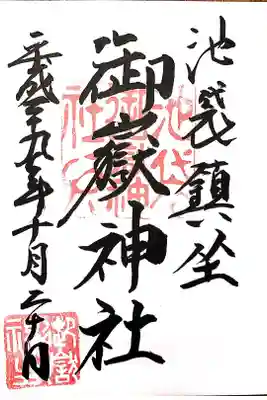 池袋鎮坐
御嶽神社
平成二十九年十月二十日